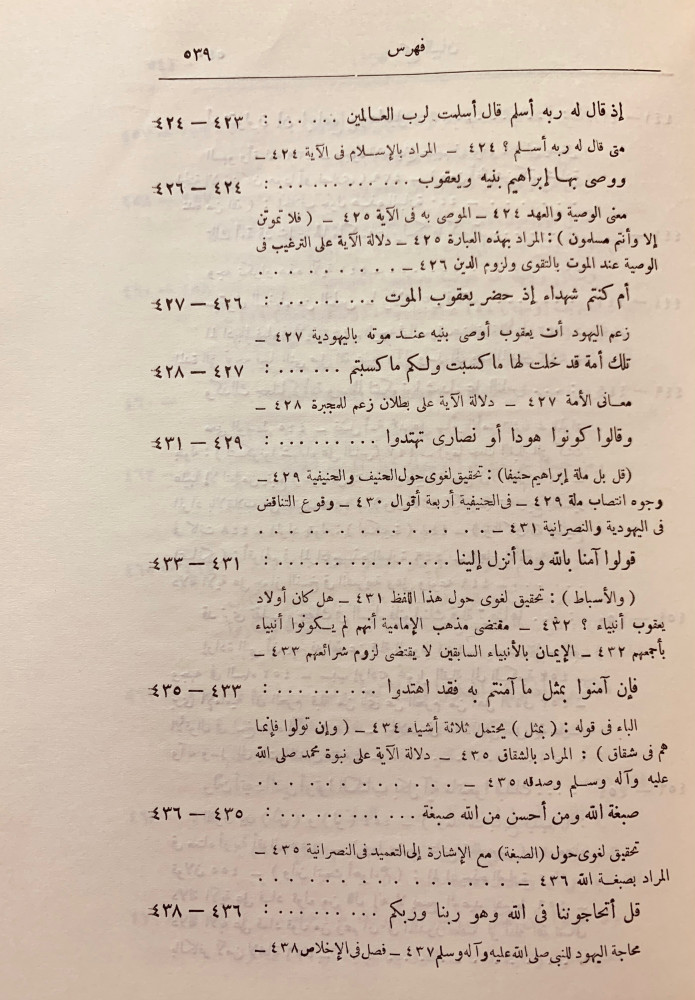 فهرس ٥٣٩
إذ قال له ربه أسلم قال أسلمت لرب العـالمين ...... : ٤٢٣ – ٤٢٤
متى قال له ربه أسـلم ؟ ٤٢٤ – المراد بالإسـلام فى الآية ٤٢٤ –
ووصى بهـا إبراهيم بنيه ويعقوب ............ : ٤٢٤ – ٤٢٦
معنى الوصية والعهد ٤٢٤ – الموصى به فى الآية ٤٢٥ – ( فلا تموتن
إلا وأنتم مسلمون ) : المراد بهذه العبارة ٤٢٥ – دلالة الآية على الترغيب فى
الوصية عند الموت بالتقوى ولزوم الدين ٤٢٦ – . . . . . . . . . .
أم كنتم شهداء إذ حضر يعقوب الموت ......... : ٤٢٦ – ٤٢٧
زعم اليهود أن يعقوب أوصى بنيه عنـد موته باليهودية ٤٢٧ –
تلك أمة قد خلت لها ما كسبت ولـكم ما كسبتم ...... : ٤٢٧ – ٤٢٨
معـانى الأمة ٤٢٧ – دلالة الآية على بطلان زعم للمجبرة ٤٢٨ –
وقالوا كونوا هودا أو نصارى تهتدوا ......... : ٤٢٩ – ٤٣١
(قل بل ملة إبراهيم حنيفا) : تحقيق لغوى حول الحنيف والحنيفية ٤٢٩ –
وجوه انتصاب ملة ٤٢٩ – فى الحنيفية أربعة أقوال ٤٣٠ – وقوع التناقض
فى اليهودية والنصرانية ٤٣١ – . . . . . . . . . . . .
قولوا آمنا بالله وما أنزل إلينا ............... : ٤٣١ – ٤٣٣
( والأسباط ) : تحقيق لغوى حول هذا اللفظ ٤٣١ – هل كان أولاد
يعقوب أنبياء ؟ ٤٣٢ – مقتضى مذهب الإمامية أنهم لم يـكونوا أنبياء
بأجمعهم ٤٣٢ – الإيمان بالأنبياء السابقين لا يقتضى لزوم شرائعهم ٤٣٣ –
فإن آمنوا بمثل ما آمنتم به فقد اهتدوا ......... : ٤٣٣ – ٤٣٥
الباء فى قوله : ( بمثل ) يحتمل ثلاثة أشياء ٤٣٤ – ( وإن تولوا فإنما
هم فى شقاق ) : المراد بالشقاق ٤٣٥ – دلالة الآية على نبوة محمد صلى الله
عليه وآله وسـلم وصدقه ٤٣٥ – . . . . . . . . . . . .
صبغة الله ومن أحسن من الله صبغة ............ : ٤٣٥ – ٤٣٦
تحقيق لغوى حول (الصبغة) مع الإشارة إلى التعميد فى النصرانية ٤٣٥ –
المراد بصبغـة الله ٤٣٦ – . . . . . . . . . . . . .
قل أتحاجوننا فى الله وهو ربنا وربكم ......... : ٤٣٦ – ٤٣٨
محاجة اليهود للنبى صلى الله عليه وآله وسلم ٤٣٧ – فصل فى الإخلاص ٤٣٨ –